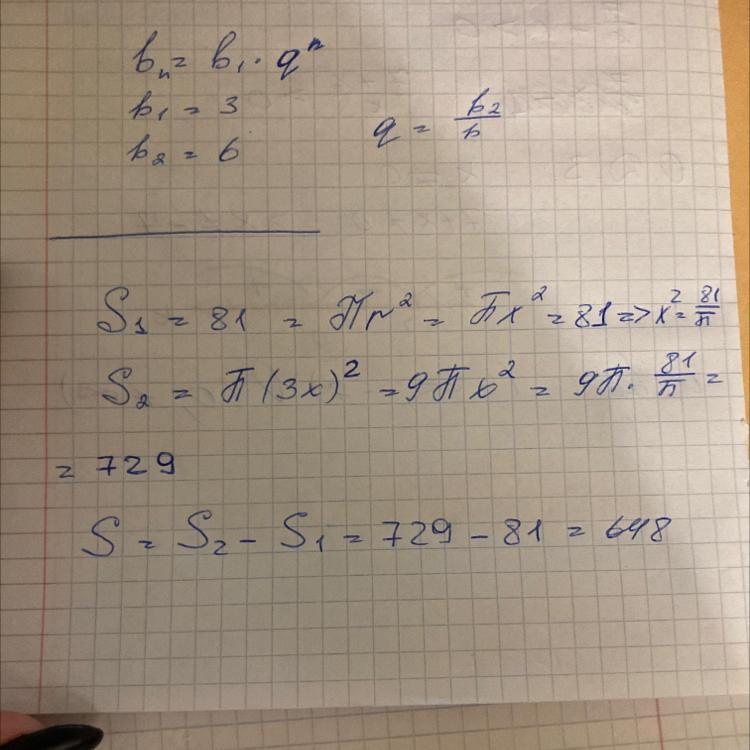 bₙ = b₁ · qⁿ
b₁ = 3
b₂ = 6
q = b₂/b
S₁ = 81 = Пr² = Пx² = 81 => x² = 81/П
S₂ = П(3x)² = 9Пx² = 9П · 81/П =
= 729
S = S₂ - S₁ = 729 - 81 = 648